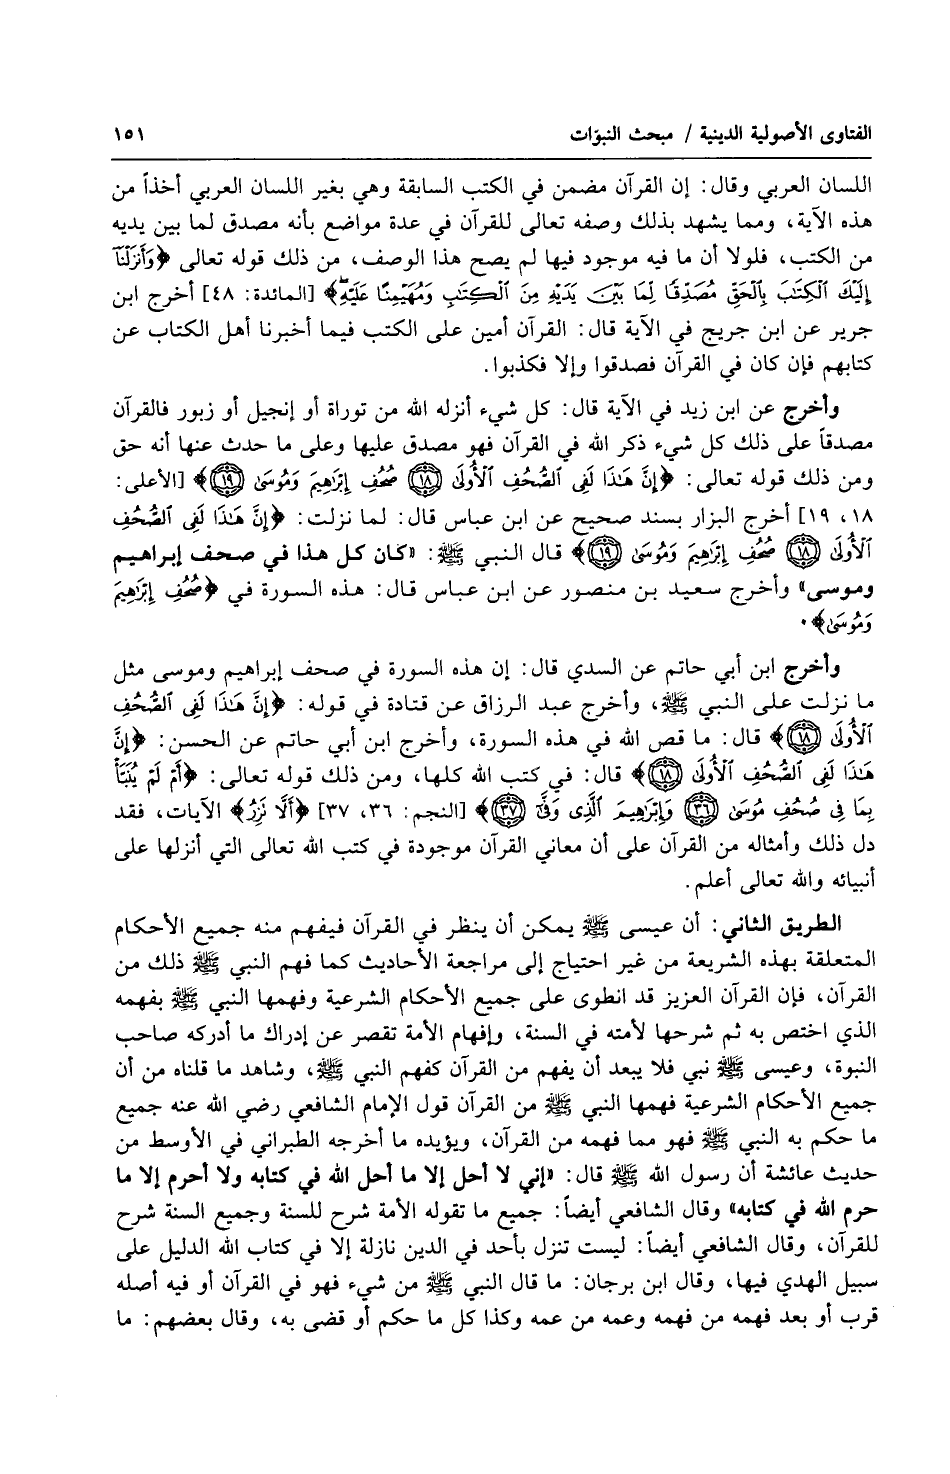 الفتاوى الأصولية الدينية / مبحث النبوّات ١٥١
اللسان العربي وقال: إن القرآن مضمن في الكتب السابقة وهي بغير اللسان العربي أخذاً من
هذه الآية، ومما يشهد بذلك وصفه تعالى للقرآن في عدة مواضع بأنه مصدق لما بين يديه
من الكتب، فلولا أن ما فيه موجود فيها لم يصح هذا الوصف، من ذلك قوله تعالى ﴿وَأَنزَلْنَآ
إِلَيْكَ ٱلْكِتَٰبَ بِٱلْحَقِّ مُصَدِّقًا لِّمَا بَيْنَ يَدَيْهِ مِنَ ٱلْكِتَٰبِ وَمُهَيْمِنًا عَلَيْهِ﴾ [المائدة: ٤٨] أخرج ابن
جرير عن ابن جريج في الآية قال: القرآن أمين على الكتب فيما أخبرنا أهل الكتاب عن
كتابهم فإن كان في القرآن فصدقوا وإلا فكذبوا.
وأخرج عن ابن زيد في الآية قال: كل شيء أنزله الله من توراة أو إنجيل أو زبور فالقرآن
مصدقاً على ذلك كل شيء ذكر الله في القرآن فهو مصدق عليها وعلى ما حدث عنها أنه حق
ومن ذلك قوله تعالى: ﴿إِنَّ هَٰذَا لَفِى ٱلصُّحُفِ ٱلْأُولَىٰ ﴿١٨﴾ صُحُفِ إِبْرَٰهِيمَ وَمُوسَىٰ ﴿١٩﴾﴾ [الأعلى:
١٨، ١٩] أخرج البزار بسند صحيح عن ابن عباس قال: لما نزلت: ﴿إِنَّ هَٰذَا لَفِى ٱلصُّحُفِ
ٱلْأُولَىٰ ﴿١٨﴾ صُحُفِ إِبْرَٰهِيمَ وَمُوسَىٰ ﴿١٩﴾﴾ قال النبي ﷺ: «كان كل هذا في صحف إبراهيم
وموسى» وأخرج سعيد بن منصور عن ابن عباس قال: هذه السورة في ﴿صُحُفِ إِبْرَٰهِيمَ
وَمُوسَىٰ﴾.
وأخرج ابن أبي حاتم عن السدي قال: إن هذه السورة في صحف إبراهيم وموسى مثل
ما نزلت على النبي ﷺ، وأخرج عبد الرزاق عن قتادة في قوله: ﴿إِنَّ هَٰذَا لَفِى ٱلصُّحُفِ
ٱلْأُولَىٰ ﴿١٨﴾﴾ قال: ما قص الله في هذه السورة، وأخرج ابن أبي حاتم عن الحسن: ﴿إِنَّ
هَٰذَا لَفِى ٱلصُّحُفِ ٱلْأُولَىٰ ﴿١٨﴾﴾ قال: في كتب الله كلها، ومن ذلك قوله تعالى: ﴿أَمْ لَمْ يُنَبَّأْ
بِمَا فِى صُحُفِ مُوسَىٰ ﴿٣٦﴾ وَإِبْرَٰهِيمَ ٱلَّذِى وَفَّىٰٓ ﴿٣٧﴾﴾ [النجم: ٣٦، ٣٧] ﴿أَلَّا نَزِرُ﴾ الآيات، فقد
دل ذلك وأمثاله من القرآن على أن معاني القرآن موجودة في كتب الله تعالى التي أنزلها على
أنبيائه والله تعالى أعلم.
الطريق الثاني: أن عيسى ﷺ يمكن أن ينظر في القرآن فيفهم منه جميع الأحكام
المتعلقة بهذه الشريعة من غير احتياج إلى مراجعة الأحاديث كما فهم النبي ﷺ ذلك من
القرآن، فإن القرآن العزيز قد انطوى على جميع الأحكام الشرعية وفهمها النبي ﷺ بفهمه
الذي اختص به ثم شرحها لأمته في السنة، وإفهام الأمة تقصر عن إدراك ما أدركه صاحب
النبوة، وعيسى ﷺ نبي فلا يبعد أن يفهم من القرآن كفهم النبي ﷺ، وشاهد ما قلناه من أن
جميع الأحكام الشرعية فهمها النبي ﷺ من القرآن قول الإمام الشافعي رضي الله عنه جميع
ما حكم به النبي ﷺ فهو مما فهمه من القرآن، ويؤيده ما أخرجه الطبراني في الأوسط من
حديث عائشة أن رسول الله ﷺ قال: «إني لا أحل إلا ما أحل الله في كتابه ولا أحرم إلا ما
حرم الله في كتابه» وقال الشافعي أيضاً: جميع ما تقوله الأمة شرح للسنة وجميع السنة شرح
للقرآن، وقال الشافعي أيضاً: ليست تنزل بأحد في الدين نازلة إلا في كتاب الله الدليل على
سبيل الهدي فيها، وقال ابن برجان: ما قال النبي ﷺ من شيء فهو في القرآن أو فيه أصله
قرب أو بعد فهمه من فهمه وعمه من عمه وكذا كل ما حكم أو قضى به، وقال بعضهم: ما